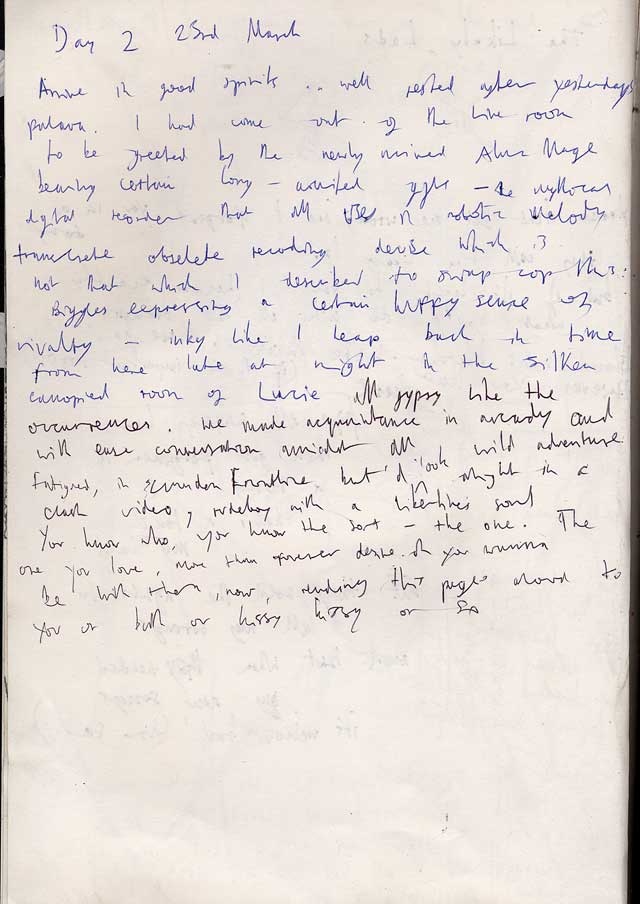 Day 2 23rd March
Arrive in good spirits .. well rested after yesterdays
palava. I had come out of the live room
to be greeted by the newly arrived
bearing certain long - awaited - the mythical
digital recorder that all uses in robotic melody
obsolete recording devise which is
not that which I described to swap
Biggles expressing a certain huffy sense of
rivalry - inky like I leap back in time
from here late at night in the silken
canopied room of Lucie all gypsy like the
occurrences. We made acquaintance in arcady and
with ease conversation amidst all wild adventure.
Fatigued, in but I'd look alright in a
clash video, rudeboy with a libertines soul
You know who, you know the sort - the one. The
one you love, more than forever desire. Oh you wanna
be with them, now, reading this page aloud to
you or both or kissy kissy or so